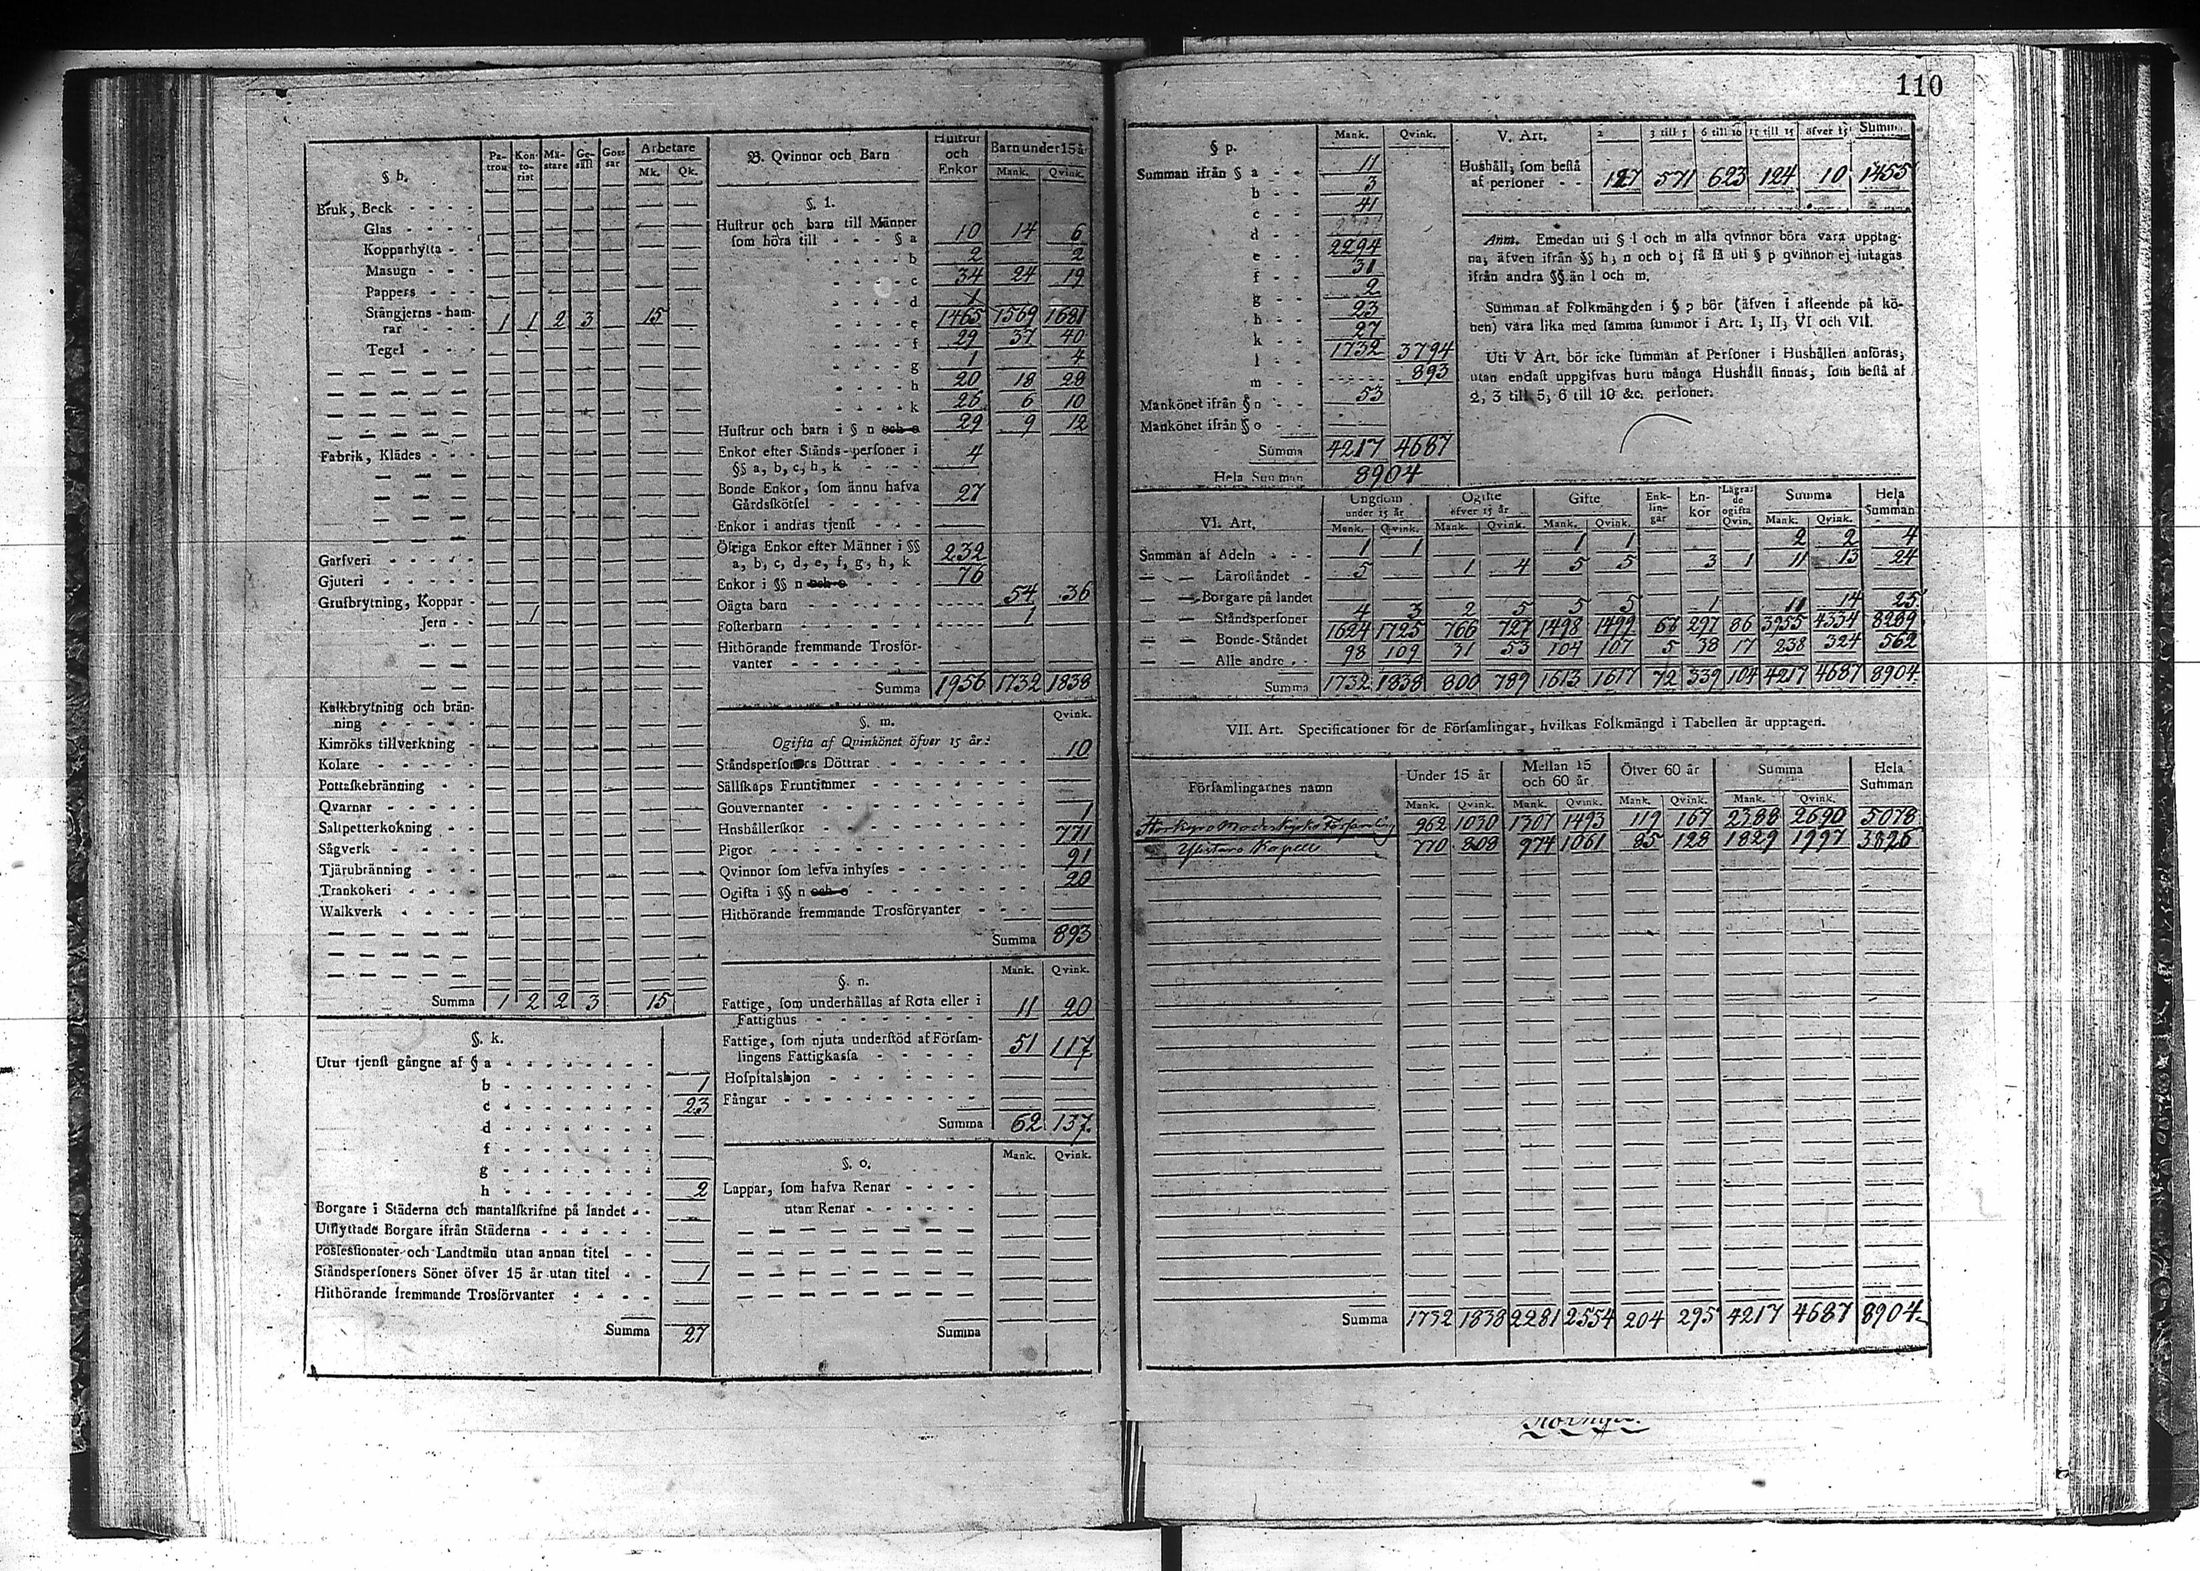 110
§ h.
Pa-tron Kon-to-rist Mä-stare Ge-säll Gos-sar Arbetare
Mk. Qk.
Bruk, Beck
Glas
Kopparhytta
Masugn
Pappers
Stångjerns-ham-
rar 1 1 2 3 15
Tegel
Fabrik, Klädes
Garfveri
Gjuteri
Grufbrytning, Koppar
Jern 1
Kalkbrytning och brän-
ning
Kimröks tillverkning
Kolare
Pottaskebränning
Qvarnar
Saltpetterkokning
Sågverk
Tjärubränning
Trankokeri
Walkverk
Summa 1 2 2 3 15
§. k.
Utur tjenst gångne af § a
b 1
c 23
d
f
g
h 2
Borgare i Städerna och mantalskrifne på landet
Utflyttade Borgare ifrån Städerna
Possessionater och Landtmän utan annan titel
Ståndspersoners Söner öfver 15 år utan titel 1
Hithörande fremmande Trosförvanter
Summa 27
B. Qvinnor och Barn
Hustrur och Enkor Barn under 15 år
Mank. Qvink.
§. l.
Hustrur och barn till Männer
som höra till § a 10 14 6
b 2 2
c 34 24 19
d 1
e 1465 1569 1681
f 29 37 40
g 1 4
h 20 18 28
k 26 6 10
Hustrur och barn i § n och o 29 9 12
Enkor efter Stånds-personer i
§§ a, b, c, h, k 4
Bonde Enkor, som ännu hafva
Gårdsskötsel 27
Enkor i andras tjenst
Öfriga Enkor efter Männer i §§
a, b, c, d, e, f, g, h, k 232
Enkor i §§ n och o 76
Oägta barn 54 36
Fosterbarn 1
Hithörande fremmande Trosför-
vanter
Summa 1956 1732 1838
§. m. Qvink.
Ogifta af Qvinkönet öfver 15 år:
Ståndspersoners Döttrar 10
Sällskaps Fruntimmer
Gouvernanter
Hushållerskor 1
Pigor 771
Qvinnor som lefva inhyses 91
Ogifta i §§ n och o 20
Hithörande fremmande Trosförvanter
Summa 893
§. n. Mank. Qvink.
Fattige, som underhållas af Rota eller i
Fattighus 11 20
Fattige, som njuta understöd af Försam-
lingens Fattigkassa 51 117
Hospitalshjon
Fångar
Summa 62 137
§. o. Mank. Qvink.
Lappar, som hafva Renar
utan Renar
Summa
§ p. Mank. Qvink.
Summan ifrån § a 11
b 3
c 41
d
e 2294
f 31
g 2
h 23
k 27
l 1732 3794
m 893
Mankönet ifrån § n 53
Mankönet ifrån § o
Summa 4217 4687
Hela Summan 8904
V. Art. 2 3 till 5 6 till 10 11 till 15 öfver 15 Summa
Hushåll, som bestå
af personer 127 571 623 124 10 1455
Anm. Emedan uti § l och m alla qvinnor böra vara upptag-
na, äfven ifrån §§ h, n och o; så få uti § p qvinnor ej intagas
ifrån andra §§ än l och m.
Summan af Folkmängden i § p bör (äfven i afseende på kö-
nen) vara lika med samma summor i Art. I, II, VI och VII.
Uti V Art. bör icke summan af Personer i Hushållen anföras,
utan endast uppgifvas huru många Hushåll finnas, som bestå af
2, 3 till 5, 6 till 10 &c. personer.
VI. Art. Ungdom under 15 år Ogifte öfver 15 år Gifte Enk-lin-gar En-kor Lägra-de ogifta Qvin. Summa Hela Summan
Mank. Qvink. Mank. Qvink. Mank. Qvink. Mank. Qvink.
Summan af Adeln 1 1 1 1 2 2 4
— — Läroståndet 5 1 4 5 5 3 1 11 13 24
— — Borgare på landet
— — Ståndspersoner 4 3 2 5 5 5 1 11 14 25
— — Bonde-Ståndet 1624 1725 766 727 1498 1499 67 297 86 3955 4334 8289
— — Alle andre 98 109 31 53 104 107 5 38 17 238 324 562
Summa 1732 1838 800 789 1613 1617 72 339 104 4217 4687 8904
VII. Art. Specificationer för de Församlingar, hvilkas Folkmängd i Tabellen är upptagen.
Församlingarnes namn Under 15 år Mellan 15 och 60 år Öfver 60 år Summa Hela Summan
Mank. Qvink. Mank. Qvink. Mank. Qvink. Mank. Qvink.
Storkyro Moderkyrko Församling 962 1030 1307 1493 119 167 2388 2690 5078
Ylistaro Kapell 770 808 974 1061 85 128 1829 1997 3826
Summa 1732 1838 2281 2554 204 295 4217 4687 8904